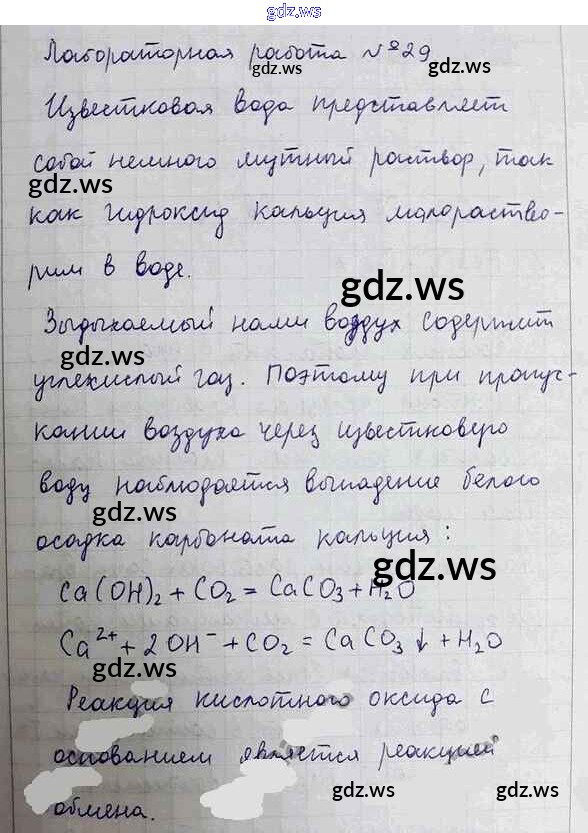 gdz.ws
Лабораторная работа №29
gdz.ws
Известковая вода представляет
собой немного мутный раствор, так
gdz.ws
как гидроксид кальция малораство-
рим в воде.
gdz.ws
Выдыхаемый нами воздух содержит
gdz.ws
углекислый газ. Поэтому при пропус-
кании воздуха через известковую
воду наблюдается выпадение белого
gdz.ws
осадка карбоната кальция:
gdz.ws
Ca(OH)₂ + CO₂ = CaCO₃ + H₂O
Ca²⁺ + 2OH⁻ + CO₂ = CaCO₃↓ + H₂O
gdz.ws
Реакция кислотного оксида с
основанием является реакцией
обмена.
gdz.ws
gdz.ws